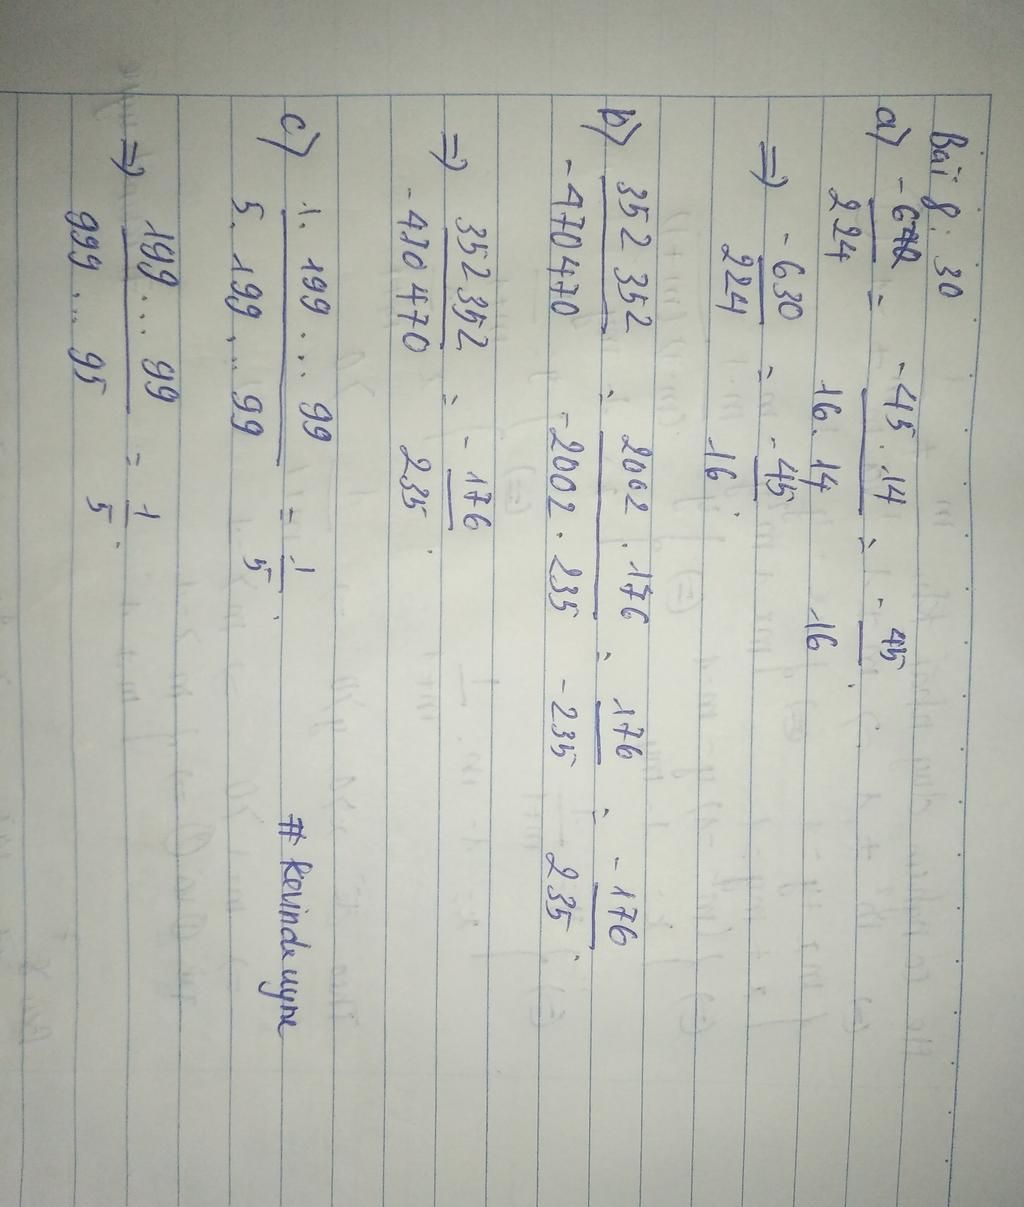 Bài 8. 30
a) -630/224 = -45.14/16.14 = -45/16.
=> -630/224 = -45/16.
b) 352 352/-470470 = 2002.176/-2002.235 = 176/-235 = -176/235.
=> 352352/-470470 = -176/235.
c) 1.199...99/5.199...99 = 1/5.
# kevindeuyne
=> 199...99/999...95 = 1/5.